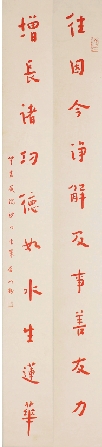 往因今淨解及事善友力
增長諸功德如水生蓮華